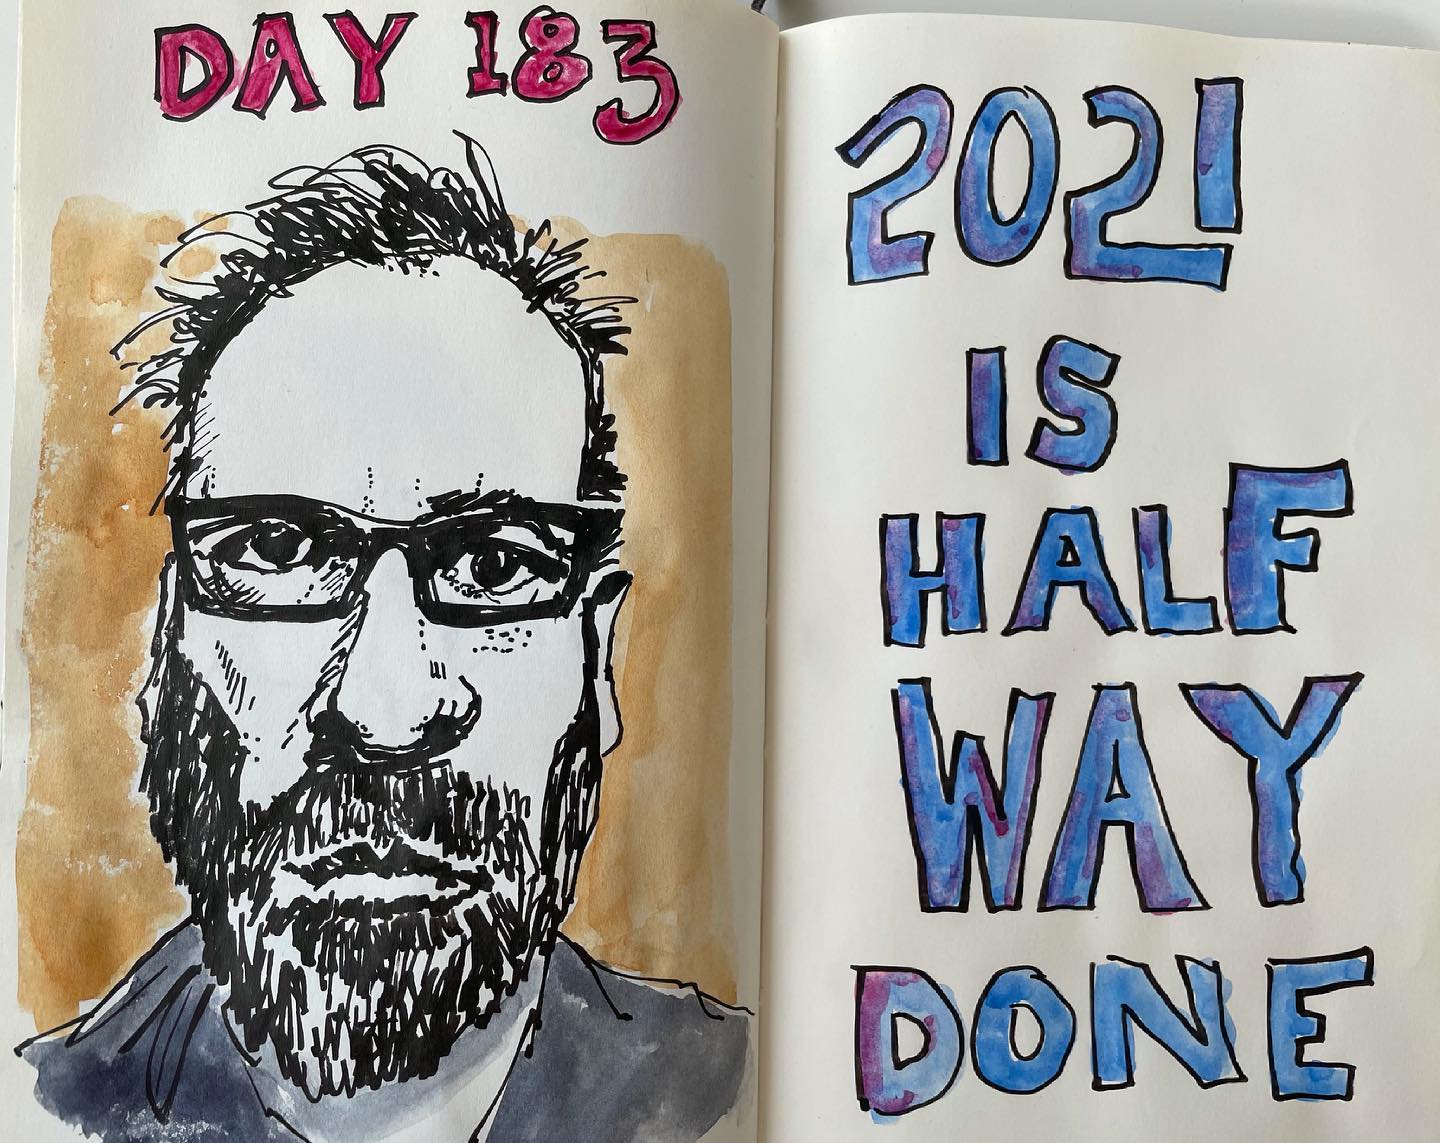 DAY 183
2021
IS
HALF
WAY
DONE